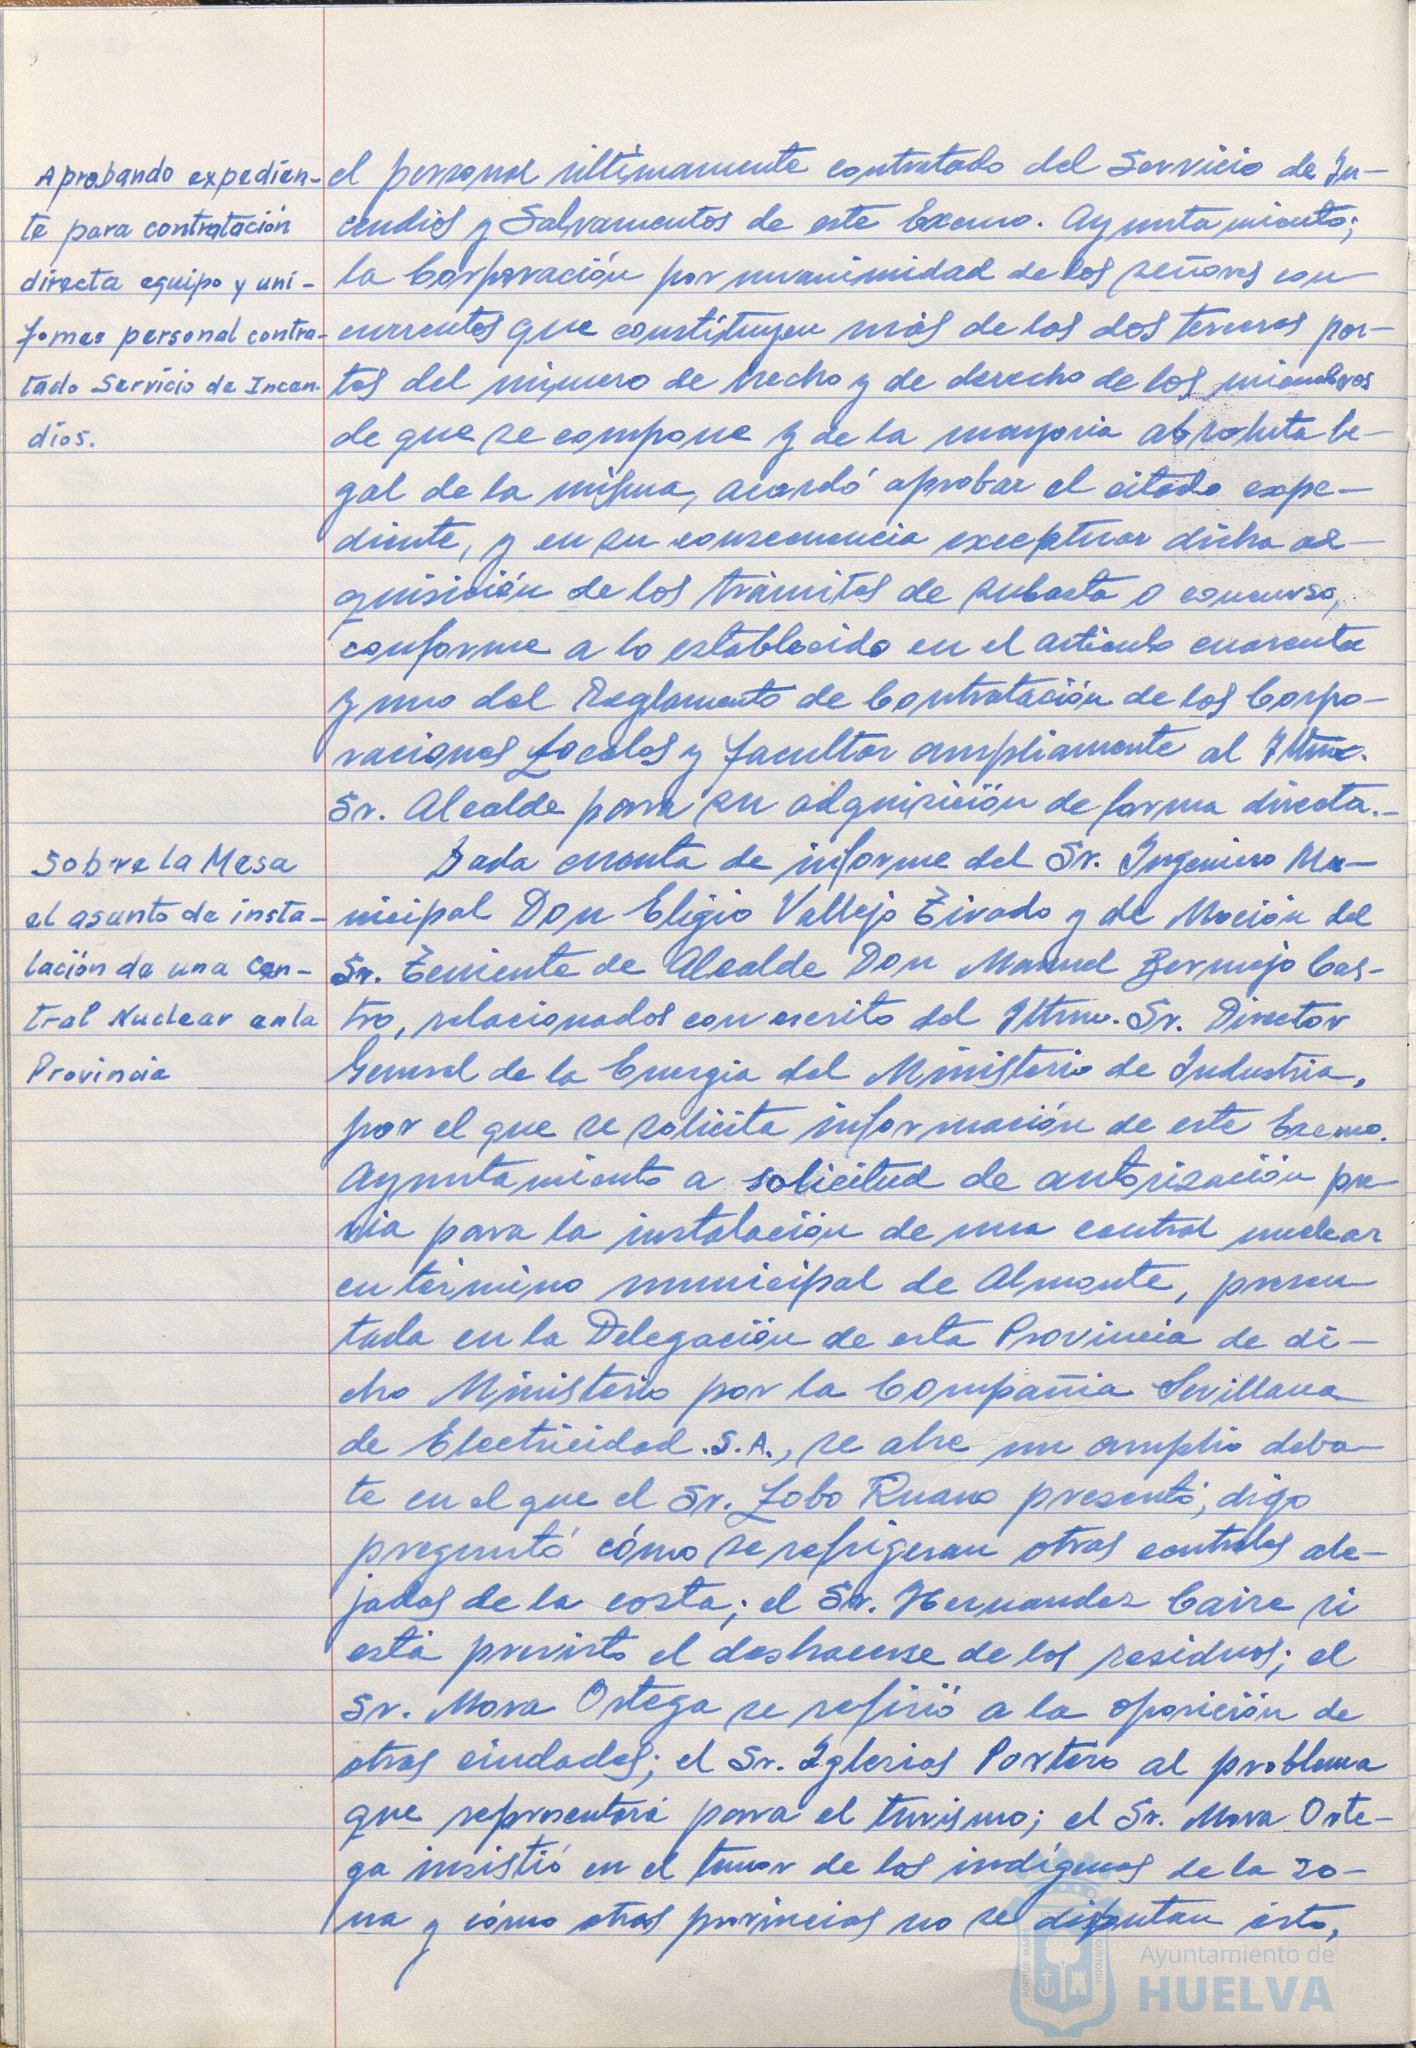 Aprobando expedien-
te para contratación
directa equipo y uni-
fomes personal contra-
tado Servicio de Incen-
dios.
el personal últimamente contratado del Servicio de In-
cendios y Salvamentos de este Excmo. Ayuntamiento;
la Corporación por unanimidad de los señores con
currentes que constituyen más de las dos terceras par-
tes del número de hecho y de derecho de los miembros
de que se compone y de la mayoria absoluta le-
gal de la misma, acordó aprobar el citado expe-
diente, y en su consecuencia exceptuar dicha ad-
quisición de los trámites de subasta o concurso,
conforme a lo establecido en el articulo cuarenta
y uno del Reglamento de Contratación de las Corpo-
raciones Locales y facultar ampliamente al Iltmo.
Sr. Alcalde para su adquisición de forma directa.-
Sobre la Mesa
el asunto de insta-
lación de una Cen-
tral Nuclear en la
Provincia
Dada cuenta de informe del Sr. Ingeniero Mu-
nicipal Don Eligio Vallejo Tirado y de Moción del
Sr. Teniente de Alcalde Don Manuel Bermejo Cas-
tro, relacionados con escrito del Iltmo. Sr. Director
General de la Energia del Ministerio de Industria,
por el que se solicita información de este Excmo.
Ayuntamiento a solicitud de autorización pre
via para la instalación de una central nuclear
en término municipal de Almonte, presen
tada en la Delegación de esta Provincia de di-
cho Ministerio por la Compañia Sevillana
de Electricidad S.A., se abre un amplio deba-
te en el que el Sr. Lobo Ruano presentó, digo
preguntó cómo se refrigeran otras centrales ale-
jadas de la costa; el Sr. Hernandez Caire si
está previsto el deshacerse de los residuos; el
Sr. Mora Ortega se refirió a la oposición de
otras ciudades; el Sr. Iglesias Portero al problema
que representará para el turismo; el Sr. Mora Orte-
ga insistió en el temor de los indígenas de la zo-
na y cómo otras provincias no se disputan ésto,
Ayuntamiento de
HUELVA